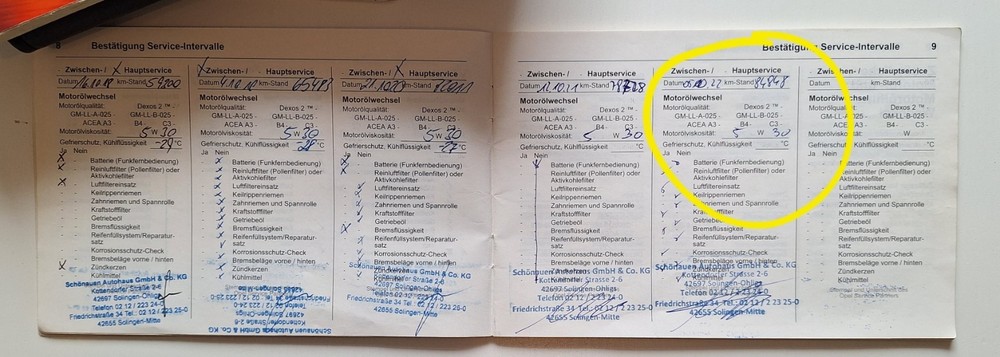 8 Bestätigung Service-Intervalle
Zwischen-/ X Hauptservice
Datum 16.10.18 km-Stand 54200
Motorölwechsel
Motorölqualität: Dexos 2 ™ -
GM-LL-A-025 - GM-LL-B-025 -
ACEA A3 - B4- C3-
Motorölviskosität: 5 W 30
Gefrierschutz, Kühlflüssigkeit -29 °C
Ja Nein
Batterie (Funkfernbedienung)
Reinluftfilter (Pollenfilter) oder
Aktivkohlefilter
Luftfiltereinsatz
Keilrippenriemen
Zahnriemen und Spannrolle
Kraftstofffilter
Getriebeöl
Bremsflüssigkeit
Reifenfüllsystem/Reparatur-
satz
Korrosionsschutz-Check
Bremsbeläge vorne / hinten
Zündkerzen
Kühlmittel
Schönauen Autohaus GmbH & Co. KG
Kottendorfer Strasse 2-6
42697 Solingen-Ohligs
Telefon 02 12 / 223 24-0
Friedrichstraße 34 Tel.: 02 12 / 2 23 25-0
42655 Solingen-Mitte
X Zwischen-/ Hauptservice
Datum km-Stand 65483
Motorölwechsel
Motorölqualität: Dexos 2 ™ -
GM-LL-A-025 - GM-LL-B-025 -
ACEA A3 - B4- C3-
Motorölviskosität: 5 W 30
Gefrierschutz, Kühlflüssigkeit -28 °C
Ja Nein
Batterie (Funkfernbedienung)
Reinluftfilter (Pollenfilter) oder
Aktivkohlefilter
Luftfiltereinsatz
Keilrippenriemen
Zahnriemen und Spannrolle
Kraftstofffilter
Getriebeöl
Bremsflüssigkeit
Reifenfüllsystem/Reparatur-
satz
Korrosionsschutz-Check
Bremsbeläge vorne / hinten
Zündkerzen
Kühlmittel
Schönauen Autohaus GmbH & Co. KG
42697 Solingen-Ohligs
42655 Solingen-Mitte
Zwischen-/ X Hauptservice
Datum km-Stand
Motorölwechsel
Motorölqualität: Dexos 2 ™ -
GM-LL-A-025 - GM-LL-B-025 -
ACEA A3 - B4- C3-
Motorölviskosität: 5 W 30
Gefrierschutz, Kühlflüssigkeit -27 °C
Ja Nein
Batterie (Funkfernbedienung)
Reinluftfilter (Pollenfilter) oder
Aktivkohlefilter
Luftfiltereinsatz
Keilrippenriemen
Zahnriemen und Spannrolle
Kraftstofffilter
Getriebeöl
Bremsflüssigkeit
Reifenfüllsystem/Reparatur-
satz
Korrosionsschutz-Check
Bremsbeläge vorne / hinten
Zündkerzen
Kühlmittel
Schönauen Autohaus GmbH & Co. KG
Kottendorfer Strasse 2-6
42697 Solingen-Ohligs
Telefon 02 12 / 223 24-0
Friedrichstraße 34 Tel.: 02 12 / 2 23 25-0
42655 Solingen-Mitte
Bestätigung Service-Intervalle 9
Zwischen-/ Hauptservice
Datum 12.10.21 km-Stand
Motorölwechsel
Motorölqualität: Dexos 2 ™ -
GM-LL-A-025 - GM-LL-B-025 -
ACEA A3 - B4- C3-
Motorölviskosität: 5 W 30
Gefrierschutz, Kühlflüssigkeit °C
Ja Nein
Batterie (Funkfernbedienung)
Reinluftfilter (Pollenfilter) oder
Aktivkohlefilter
Luftfiltereinsatz
Keilrippenriemen
Zahnriemen und Spannrolle
Kraftstofffilter
Getriebeöl
Bremsflüssigkeit
Reifenfüllsystem/Reparatur-
satz
Korrosionsschutz-Check
Bremsbeläge vorne / hinten
Zündkerzen
Schönauen Autohaus GmbH & Co. KG
Kottendorfer Strasse 2-6
42697 Solingen-Ohligs
Telefon 02 12 / 223 24-0
Friedrichstraße 34 Tel.: 02 12 / 2 23 25-0
42655 Solingen-Mitte
Zwischen-/ Hauptservice
Datum km-Stand 84848
Motorölwechsel
Motorölqualität: Dexos 2 ™ -
GM-LL-A-025 - GM-LL-B-025 -
ACEA A3 - B4- C3-
Motorölviskosität: 5 W 30
Gefrierschutz, Kühlflüssigkeit °C
Ja Nein
Batterie (Funkfernbedienung)
Reinluftfilter (Pollenfilter) oder
Aktivkohlefilter
Luftfiltereinsatz
Keilrippenriemen
Zahnriemen und Spannrolle
Kraftstofffilter
Getriebeöl
Bremsflüssigkeit
Reifenfüllsystem/Reparatur-
satz
Korrosionsschutz-Check
Bremsbeläge vorne / hinten
Zündkerzen
Schönauen Autohaus GmbH & Co. KG
Kottendorfer Strasse 2-6
42697 Solingen-Ohligs
Telefon 02 12 / 223 24-0
Friedrichstraße 34 Tel.: 02 12 / 2 23 25-0
42655 Solingen-Mitte
Zwischen-/ Hauptservice
Datum km-Stand
Motorölwechsel
Motorölqualität: Dexos 2 ™ -
GM-LL-A-025 - GM-LL-B-025 -
ACEA A3 - B4- C3-
Motorölviskosität: W
Gefrierschutz, Kühlflüssigkeit °C
Ja Nein
Batterie (Funkfernbedienung)
Reinluftfilter (Pollenfilter) oder
Aktivkohlefilter
Luftfiltereinsatz
Keilrippenriemen
Zahnriemen und Spannrolle
Kraftstofffilter
Getriebeöl
Bremsflüssigkeit
Reifenfüllsystem/Reparatur-
satz
Korrosionsschutz-Check
Bremsbeläge vorne / hinten
Zündkerzen
Kühlmittel